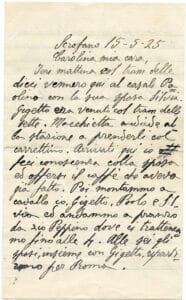 Scrofano 15-5-25
Carolina mia cara,
Ieri mattina col tram delle
dieci vennero qui al casale Pa
olino con la sua sposa Silvia.
Gigetto era venuto col tram delle
sette. Macchietta andiede al
la stazione a prenderli col
carrettino. Arrivati qui io
feci conoscenza colla sposa
ed offersi il caffè che avevo
già fatto. Poi montammo a
cavallo io, Gigetto, Paolo e Sil
via ed andammo a pranzo
da zio Peppino dove si tratten
nero fino alle 4. Alle sei gli
sposi, insieme con Gigetto, ripar
tirono per Roma